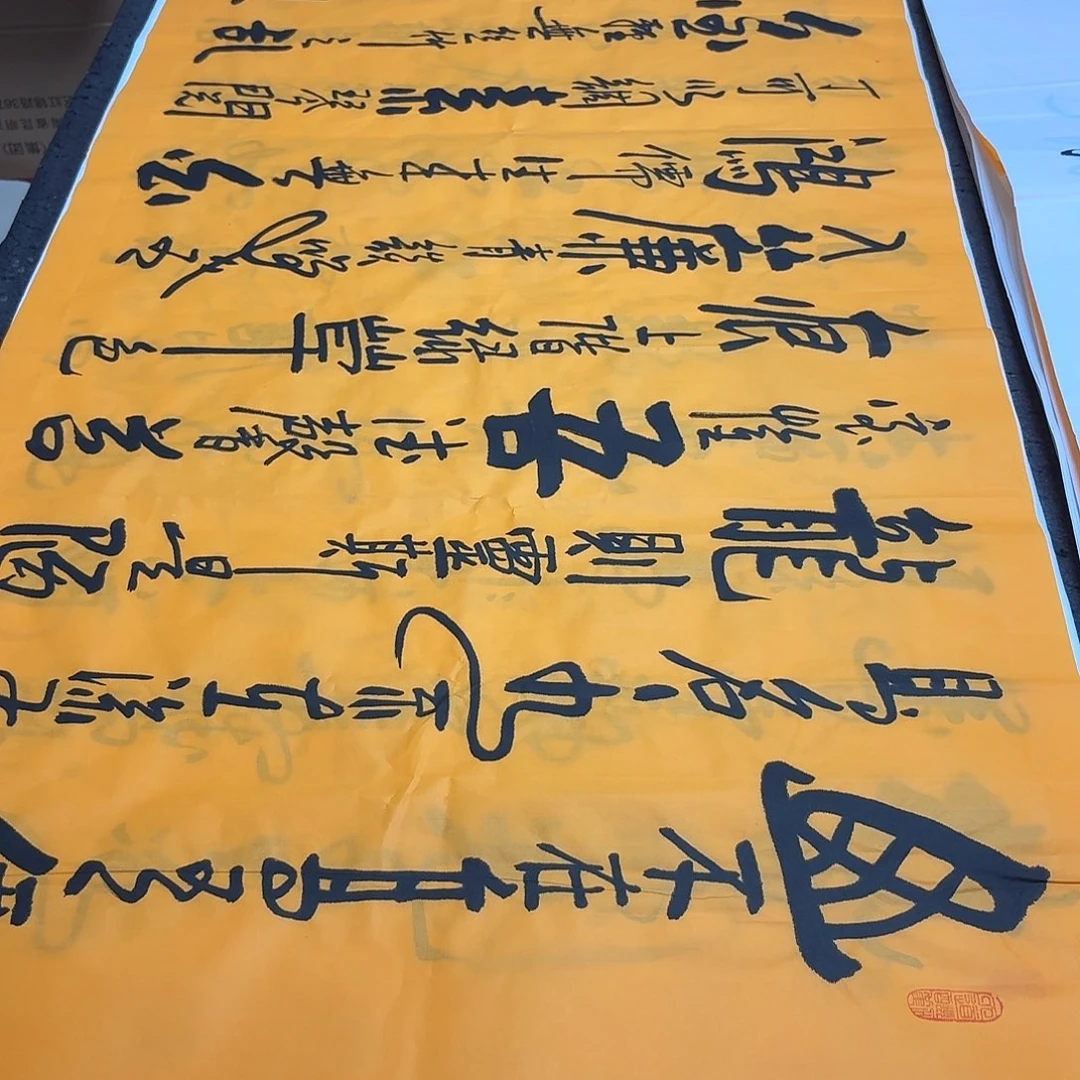 山不在高有仙
則名水不在深有
龍則靈斯是陋
室惟吾德馨苔
痕上階綠草色
入簾青談笑有
鴻儒往來無白
丁可以調素琴閱
金經無絲竹之亂